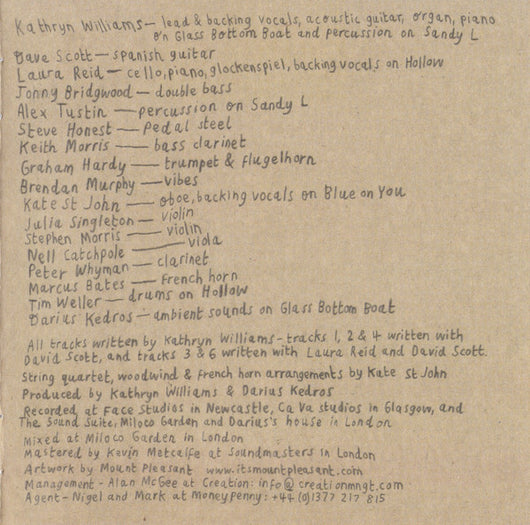 Kathryn Williams - lead & backing vocals, acoustic guitar, organ, piano
on Glass Bottom Boat and percussion on Sandy L
Dave Scott - spanish guitar
Laura Reid - cello, piano, glockenspiel, backing vocals on Hollow
Jonny Bridgwood - double bass
Alex Tustin - percussion on Sandy L
Steve Honest - Pedal steel
Keith Morris - bass clarinet
Graham Hardy - trumpet & flugelhorn
Brendan Murphy - vibes
Kate St John - oboe, backing vocals on Blue on You
Julia Singleton - violin
Stephen Morris - violin
Nell Catchpole - viola
Peter Whyman - clarinet
Marcus Bates - French horn
Tim Weller - drums on Hollow
Darius Kedros - ambient sounds on Glass Bottom Boat
All tracks written by Kathryn Williams - tracks 1, 2 & 4 written with
David Scott, and tracks 3 & 6 written with Laura Reid and David Scott.
String quartet, woodwind & French horn arrangements by Kate St John
Produced by Kathryn Williams & Darius Kedros
Recorded at Face Studios in Newcastle, Ca Va studios in Glasgow, and
The Sound Suite, Miloco Garden and Darius's house in London
Mixed at Miloco Garden in London
Mastered by Kevin Metcalfe at Soundmasters in London
Artwork by Mount Pleasant www.itsmountpleasant.com
Management - Alan McGee at Creation: info@creationmngt.com
Agent - Nigel and Mark at Moneypenny: +44 (0)1377 217 815